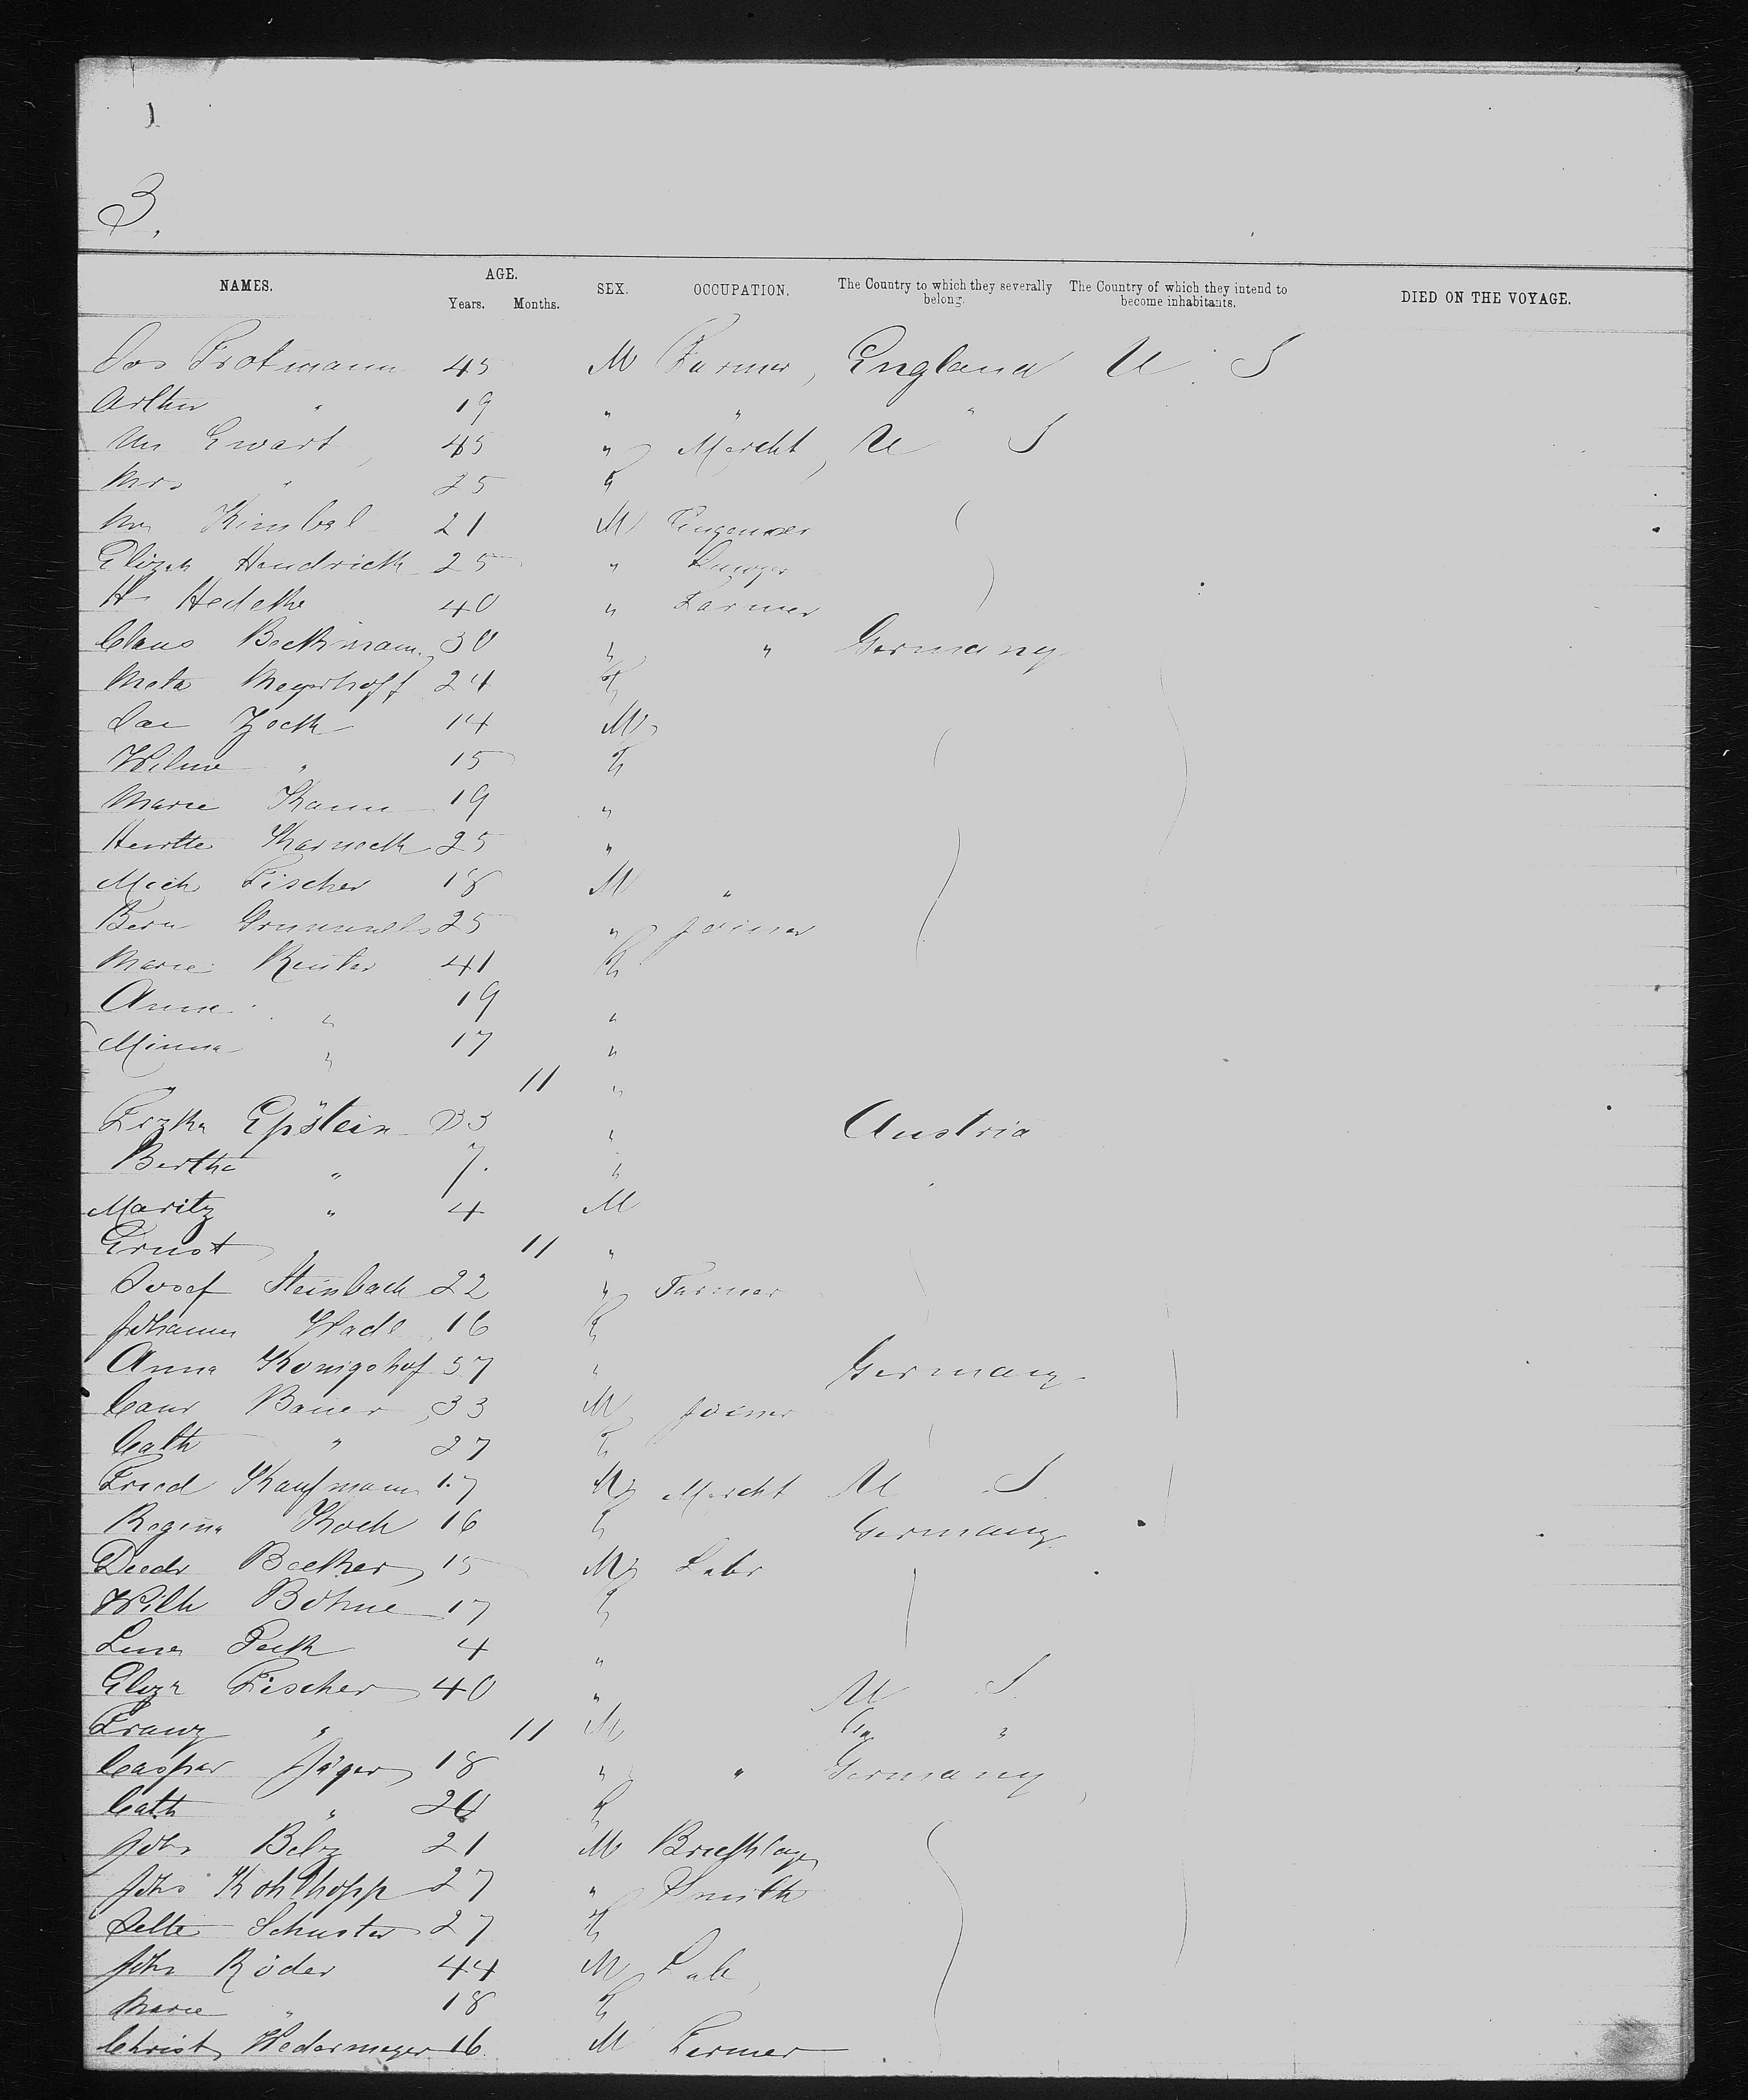 3.
NAMES. AGE. Years. Months. SEX. OCCUPATION. The Country to which they severally belong. The Country of which they intend to become inhabitants. DIED ON THE VOYAGE.
Jos Trotmann 45 M Farmer, England U. S
Arthur " 19 " " "
Wm Ewart, 45 " Mercht, U S
Mrs " 25 F
Wm Kimbal 21 M
Elizah Hendrick 25 "
H Hedeke 40 " Farmer
Claus Beckmann 30 " " Germany
Meta Meyerhoff 24 F
Zoch 14 M
Wilme " 15 F
Marie Kann 19 "
Henrtte 25 "
Mich Fischer 18 M "
Bern 25 " Joiner
Marie Reuter 41 F
Anna " 19 "
Minna " 17 "
" 11 "
Frzka Epstein 33 " Austria
Bertha " 7. "
Moritz " 4 M
Ernst " 11 "
Josef Steinbach 22 " Farmer
Johanna 16 F
Anna Konigshof 57 " Germany
Bauer 33 M Joiner
Cath " 27 F
Fried Kaufmann 17 M Mercht U S
Regina Koch 16 F Germany
Diedr Becker 15 M Labr
Wilh Böhme 17 F
Lina 4 "
Eliza Fischer 40 " U S
Franz " 11 M "
Caspar Jäger 18 " " Germany
Cath " 24 F
Johs Belz 21 M
Johs Kohlhopp 27 " Smith
Schuster 27 F
Johs Röder 44 M Lab
Marie " 18 F
Christ Wedermeyer 16 M Farmer